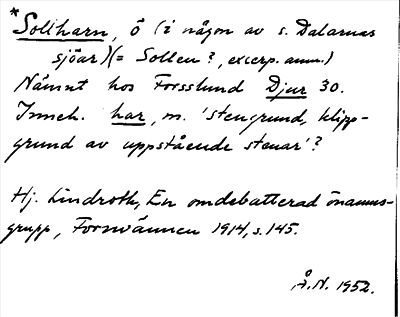 *Sollharn, ö (i någon av s. Dalarnas
sjöar) (= Sollen?, excerp. anm.)
Nämnt hos Forsslund Djur 30.
Inneh. har, n. 'stengrund, klipp-
grund av uppstående stenar'?
Hj. Lindroth, En omdebatterad önamns-
grupp, Fornvännen 1914, s. 145.
Å.N. 1952.